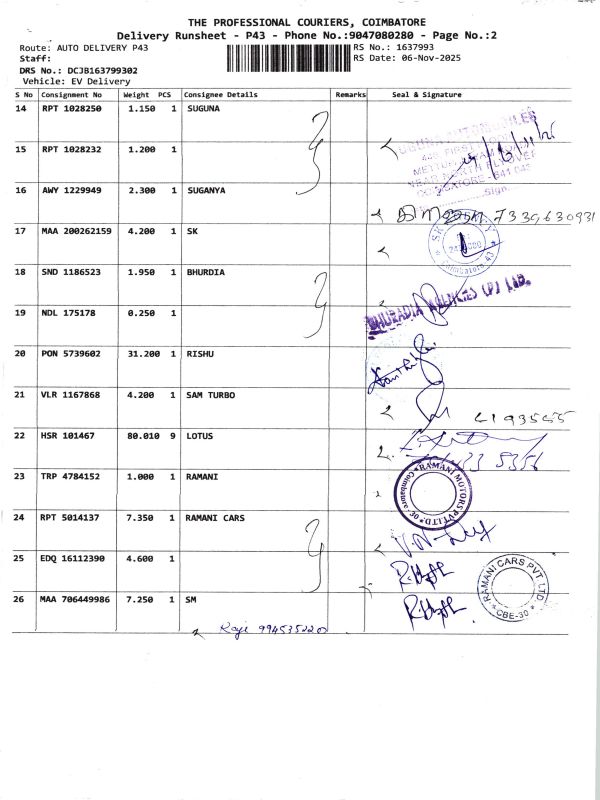 THE PROFESSIONAL COURIERS, COIMBATORE
Delivery Runsheet - P43 - Phone No.:9047080280 - Page No.:2
Route: AUTO DELIVERY P43 RS No.: 1637993
Staff: RS Date: 06-Nov-2025
DRS No.: DCJB163799302
Vehicle: EV Delivery
S No Consignment No Weight PCS Consignee Details Remarks Seal & Signature
14 RPT 1028250 1.150 1 SUGUNA
15 RPT 1028232 1.200 1
16 AWY 1229949 2.300 1 SUGANYA
7339630931
17 MAA 200262159 4.200 1 SK
Coimbatore 43
18 SND 1186523 1.950 1 BHURDIA
19 NDL 175178 0.250 1
AGENCIES (P) LTD.
20 PON 5739602 31.200 1 RISHU
21 VLR 1167868 4.200 1 SAM TURBO
22 HSR 101467 80.010 9 LOTUS
23 TRP 4784152 1.000 1 RAMANI
RAMANI MOTORS PVT LTD. Coimbatore-30
24 RPT 5014137 7.350 1 RAMANI CARS
25 EDQ 16112390 4.600 1
RAMANI CARS PVT. LTD CBE-30
26 MAA 706449986 7.250 1 SM
Raji